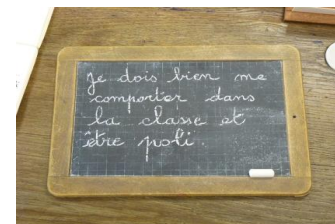 Je dois bien me
comporter dans
la classe et
être poli.